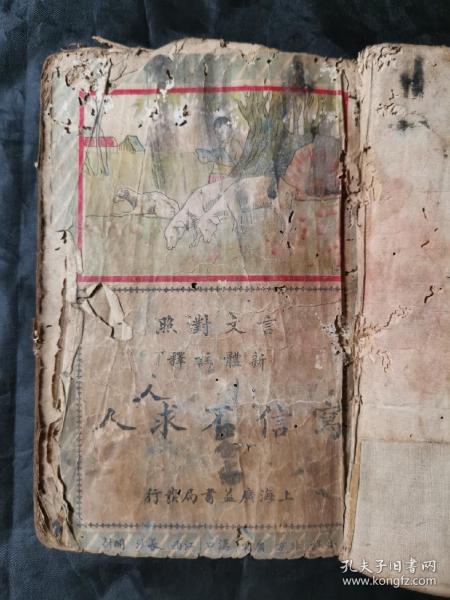 言文對照
新體廣釋
寫信不求人
上海廣益書局發行
孔夫子旧书网
www.kongfz.com